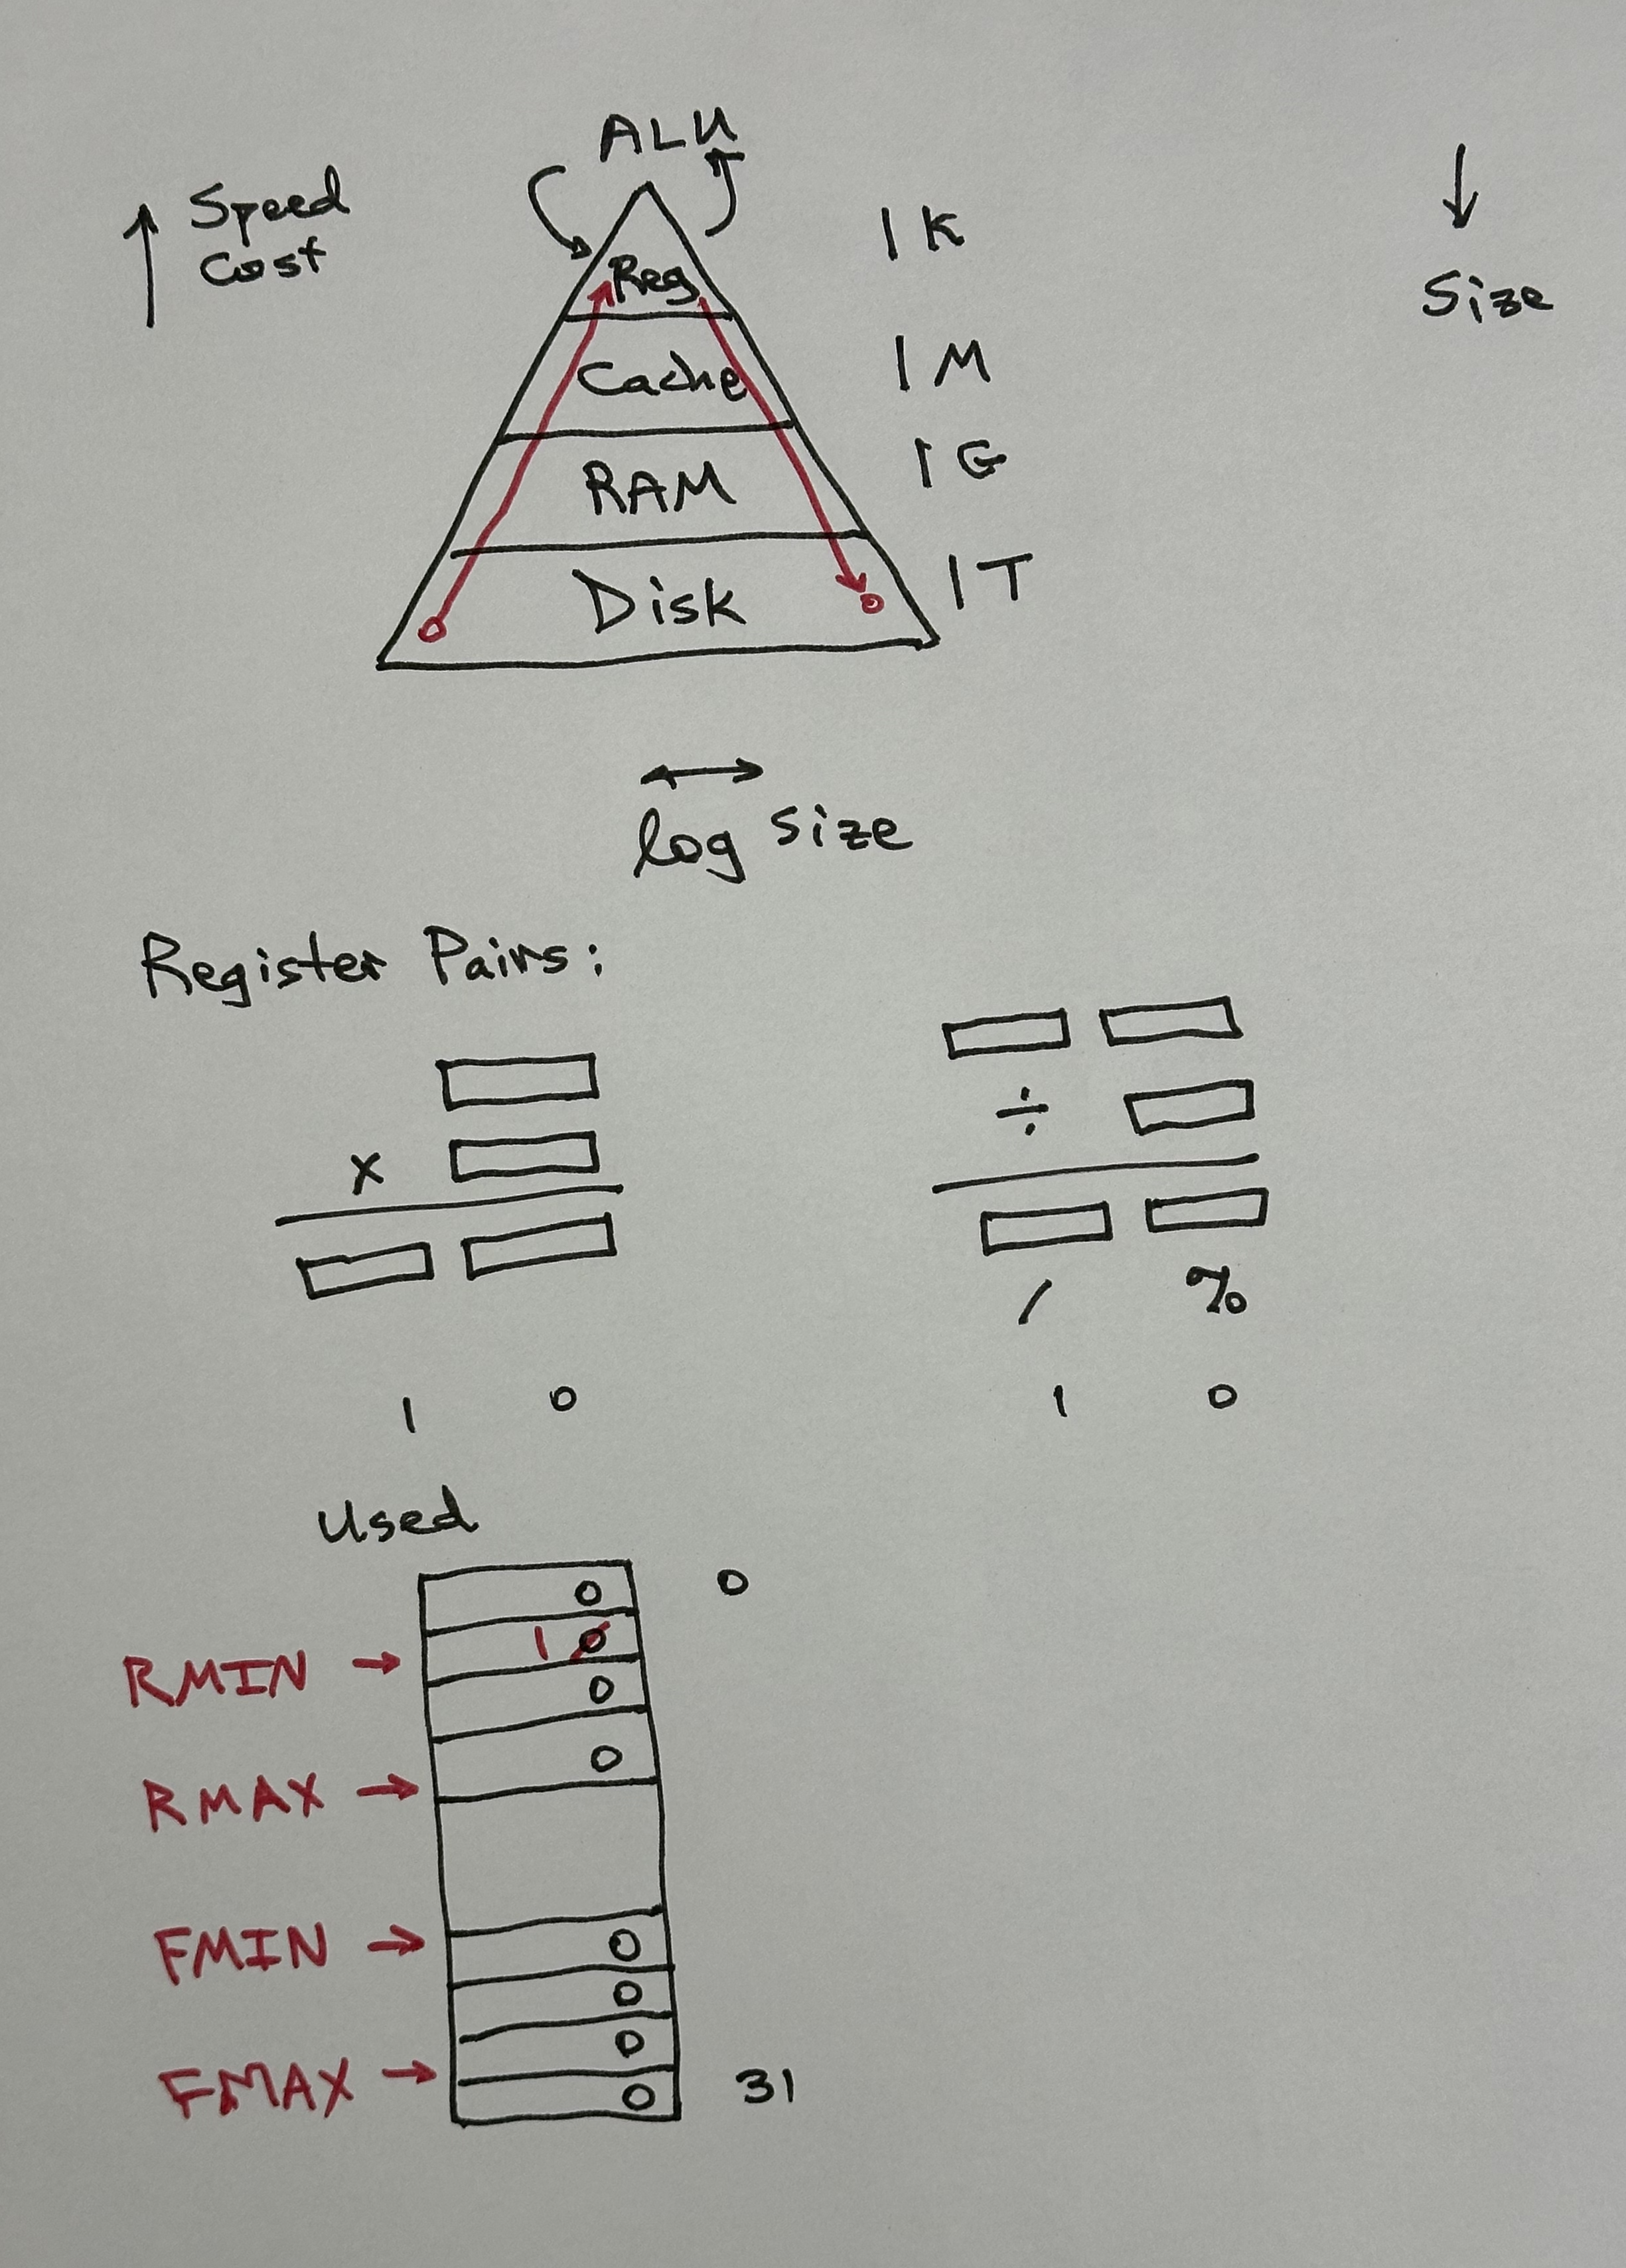 ALU
Speed
Cost
Reg
1 K
Size
Cache
1 M
RAM
1 G
Disk
1 T
log size
Register Pairs:
x
÷
/ %
1 0
1 0
Used
0 0
RMIN → 1 0
0
RMAX → 0
FMIN → 0
0
0
FMAX → 0 31